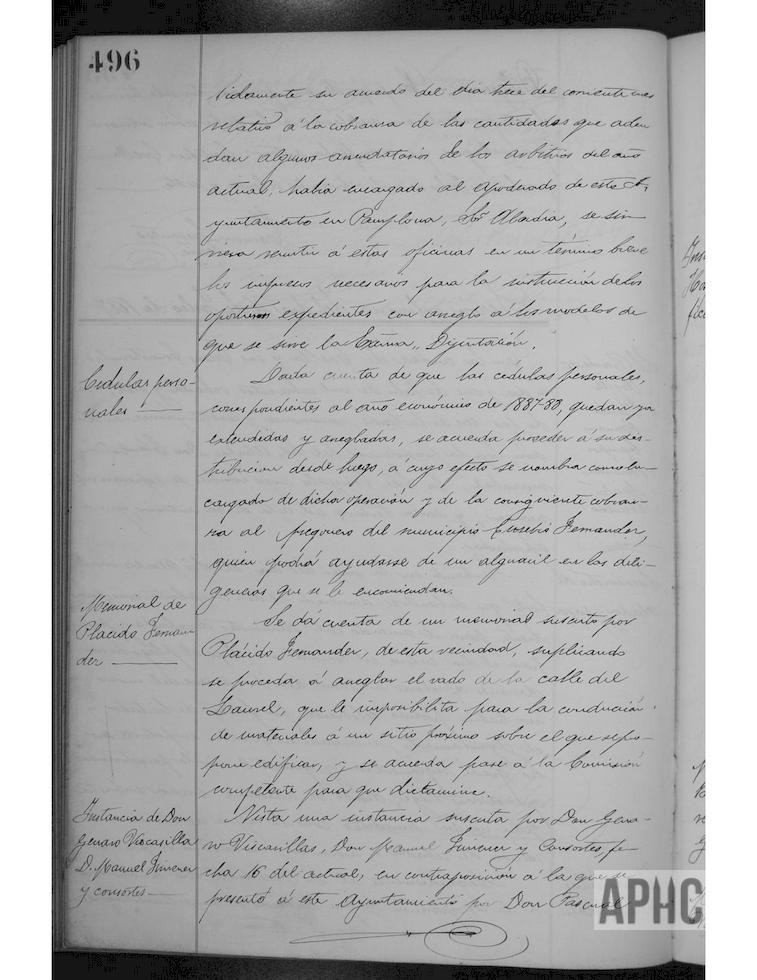 496
vidamente su acuerdo del día trece del corriente mes
relativo á la cobranza de las cantidades que adeu
dan algunos arrendatarios de los arbitrios del año
actual, había encargado al apoderado de este A-
yuntamiento en Pamplona, Sor Abadia, se sir
viera remitir á estas oficinas en un término breve
los impresos necesarios para la instrucción de los
oportunos expedientes con arreglo á los modelos de
que se sirve la Exāma. Diputación.
Cédulas perso-
nales
Dada cuenta de que las cédulas personales,
correspondientes al año económico de 1887-88, quedan ya
extendidas y arregladas, se acuerda proceder á su dis-
tribucion desde luego, á cuyo efecto se nombra como en-
cargado de dicha operación y de la consiguiente cobran-
za al pregonero del municipio Eusebio Fernandez,
quien podrá ayudarse de un alguacil en las dili-
gencias que se le encomiendan.
Memorial de
Plácido Fernan-
dez
Se dá cuenta de un memorial suscrito por
Plácido Fernandez, de esta vecindad, suplicando
se proceda á arreglar el vado de la calle del
Laurel, que le imposibilita para la conducción
de materiales á un sitio próximo sobre el que se pro-
pone edificar, y se acuerda pase á la Comisión
competente para que dictamine.
Instancia de Don
Genaro Viscasillas
D. Manuel Jimenez
y consortes
Vista una instancia suscrita por Don Gena-
ro Viscasillas, Don Manuel Jimenez y Consortes, fe-
cha 16 del actual, en contraposición á la que se
presentó á este Ayuntamiento por Don Pascual
APHC